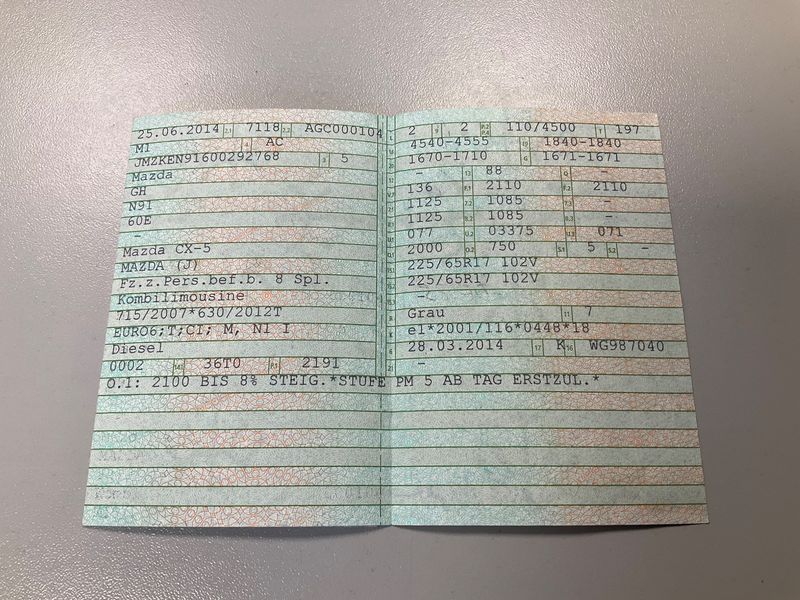 25.06.2014 2.1 7118 2.2 AGC000104
M1 4 AC
JMZKEN91600292768 3 5
Mazda
GH
N91
60E
-
Mazda CX-5
MAZDA (J)
Fz.z.Pers.bef.b. 8 Spl.
Kombilimousine
715/2007*630/2012T
EURO6;T;CI; M, N1 I
Diesel
0002 14.1 36T0 P.1 2191
L 2 9 2 P.2 P.4 110/4500 T 197
4540-4555 19 1840-1840
1670-1710 G 1671-1671
- 13 88 Q -
136 F.1 2110 F.2 2110
1125 7.2 1085 7.3 -
1125 8.2 1085 8.3 -
077 U.2 03375 U.3 071
2000 O.2 750 S.1 5 S.2 -
225/65R17 102V
225/65R17 102V
-
Grau 11 7
e1*2001/116*0448*18
28.03.2014 17 K 16 WG987040
-
O.1: 2100 BIS 8% STEIG.*STUFE PM 5 AB TAG ERSTZUL.*